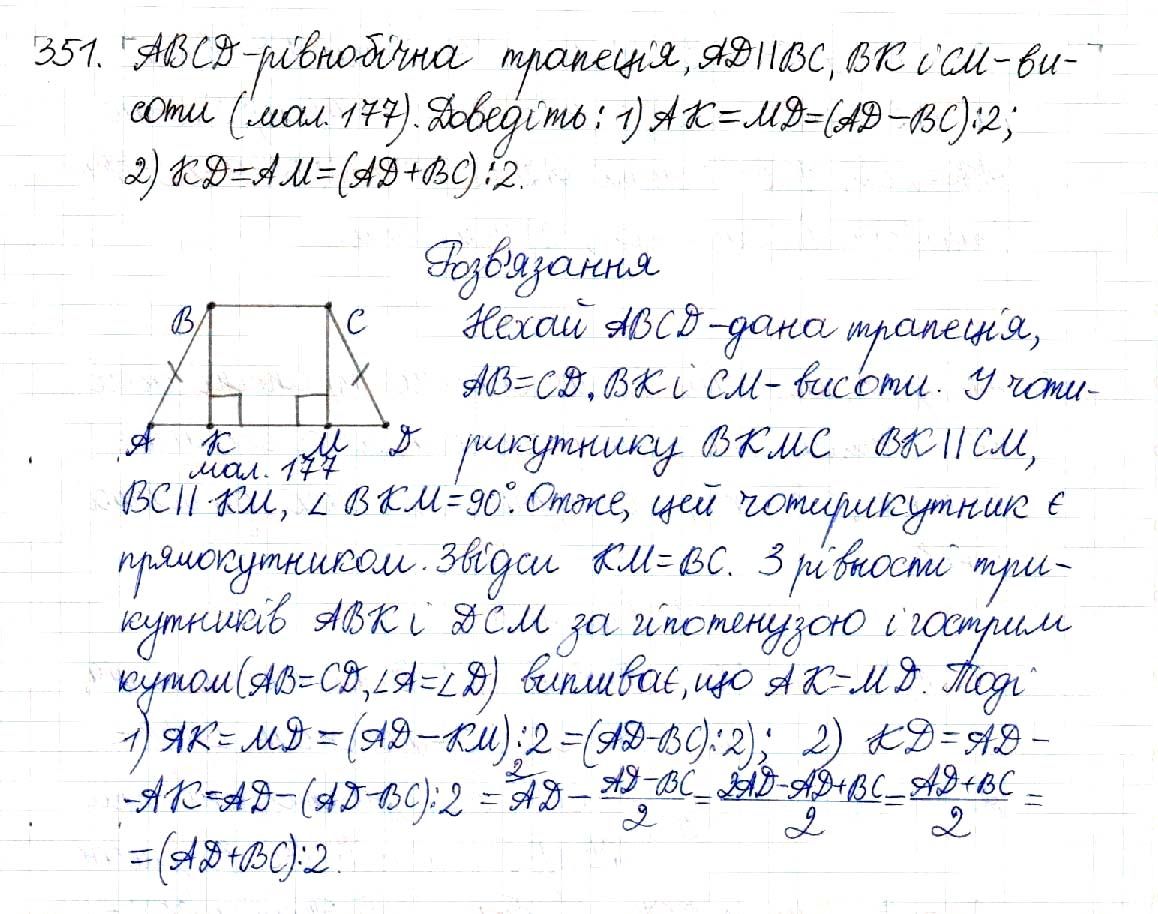 351. ABCD-рівнобічна трапеція, AD||BC, BK і CM-ви-
соти (мал. 177). Доведіть: 1) AK=MD=(AD-BC):2;
2) KD=AM=(AD+BC):2.
Розв'язання
B C
A K M D
мал. 177
Нехай ABCD-дана трапеція,
AB=CD, BK і CM-висоти. У чоти-
рикутнику BKMC BK||CM,
BC||KM, ∠BKM=90°. Отже, цей чотирикутник є
прямокутником. Звідси KM=BC. З рівності три-
кутників ABK і DCM за гіпотенузою і гострим
кутом(AB=CD, ∠A=∠D) випливає, що AK=MD. Тоді
1) AK=MD=(AD-KM):2=(AD-BC):2); 2) KD=AD-
-AK=AD-(AD-BC):2 = ²AD - (AD-BC)/2 = (2AD-AD+BC)/2 = (AD+BC)/2 =
=(AD+BC):2.